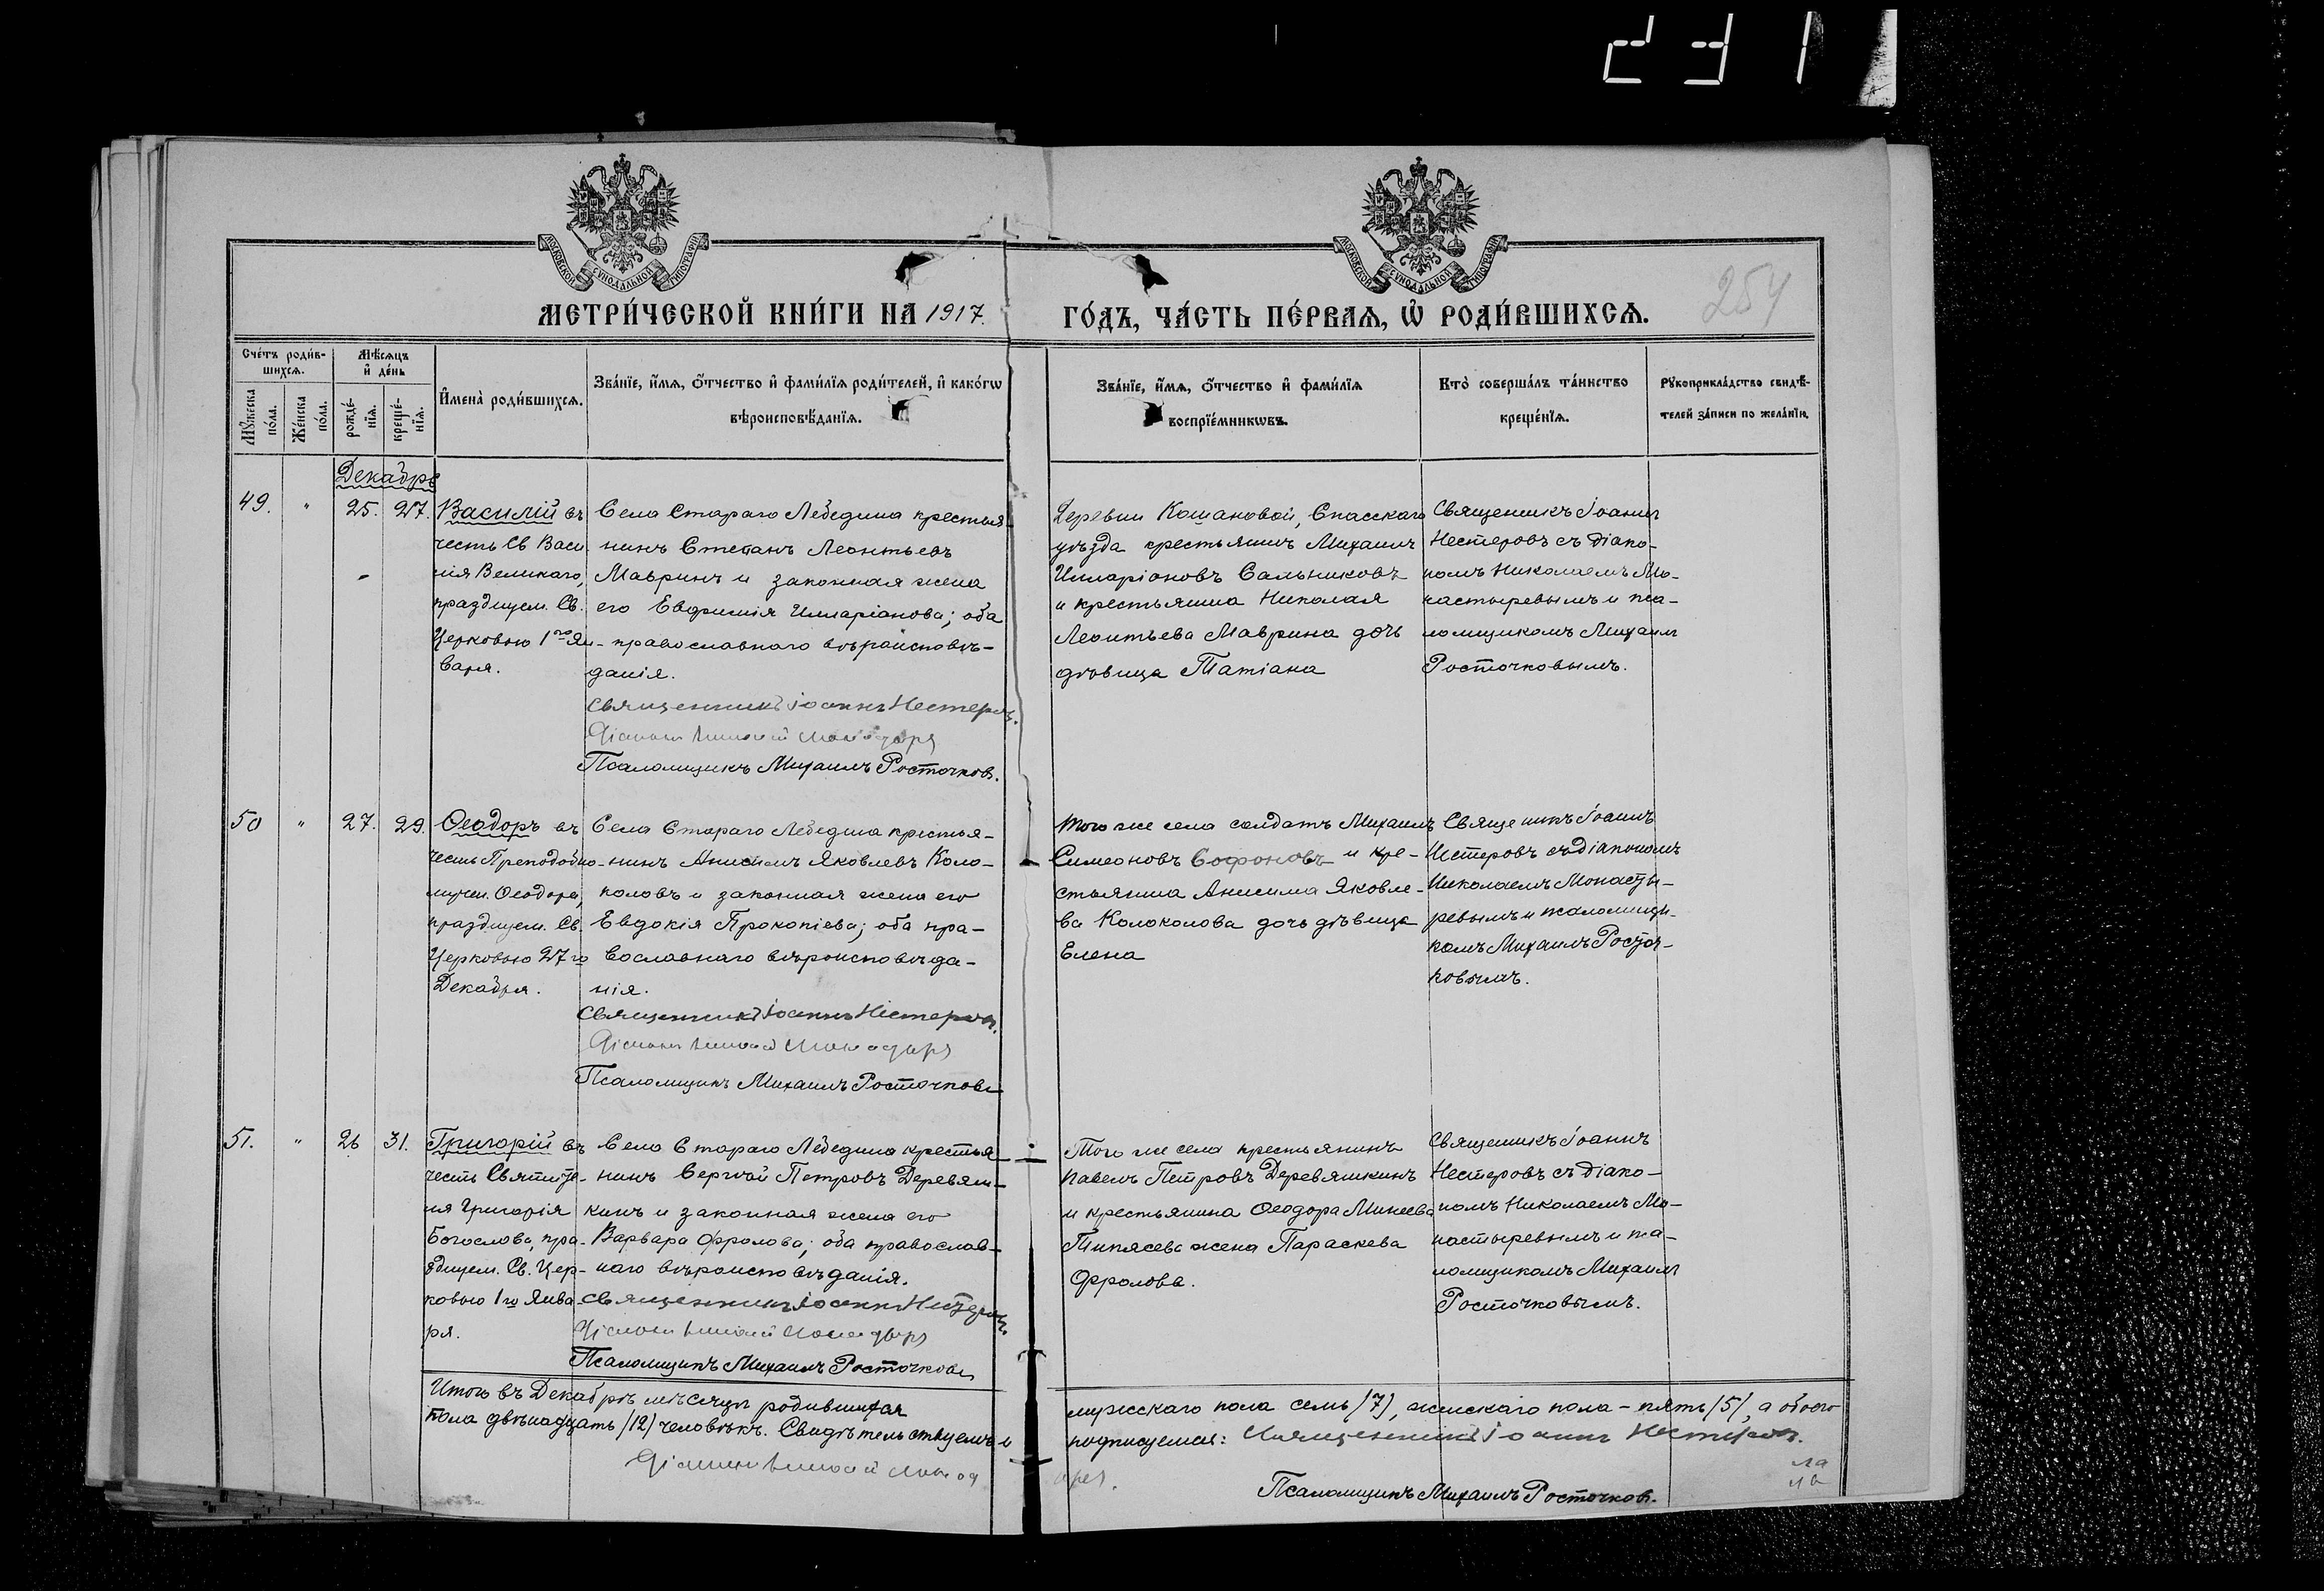 231
МОСКОВСКОЙ СУНОДАЛЬНОЙ ТИПОГРАФІИ
МОСКОВСКОЙ СУНОДАЛЬНОЙ ТИПОГРАФІИ
МЕТРИ́ЧЕСКОЙ КНИ́ГИ НА 1917.
ГО́ДЪ, ЧА́СТЬ ПЕ́РВАЯ, Ѡ РОДИ́ВШИХСЯ.
254
Сче́тъ роди́в-
шихсѧ.
Мѣ́сѧцъ
и҆ де́нь
Мꙋ́жеска
по́ла.
Же́нска
по́ла.
рожде́-
нїѧ.
креще́-
нїѧ.
И҆мена̀ роди́вшихсѧ.
Зва́нїе, и҆́мѧ, ѻ҆́тчество и҆ фамѝлїѧ роди́телей, и҆ како́гѡ
вѣроисповѣ́данїѧ.
Зва́нїе, и҆́мѧ, ѻ҆́тчество и҆ фами́лїѧ
воспрїе́мникѡвъ.
Кто̀ соверша́лъ та́инство
креще́нїѧ.
Рꙋкоприкла́дство свидѣ́-
телей за́писи по жела́нїю.
Декабрь
49. " 25. 27.
Василій въ
честь Св Васи
лія Великаго,
празднуем. Св.
Церковью 1го Ян-
варя.
Села Стараго Лебедина крестья-
нинъ Стефанъ Леонтьевъ
Мавринъ и законная жена
его Евфимія Илларіонова; оба
православнаго вѣроисповѣ-
данія.
Священникъ Іоаннъ Нестеровъ.
Діаконъ
Псаломщикъ Михаилъ Росточковъ.
Деревни Кошановой, Спасскаго
уѣзда крестьянинъ Михаилъ
Илларіоновъ Сальниковъ
и крестьянина Николая
Леонтьева Маврина дочь
дѣвица Татіана
Священникъ Іоаннъ
Нестеровъ съ діако-
номъ Николаемъ Мо-
настыревымъ и пса-
ломщикомъ Михаил
Росточковымъ.
50 " 27. 29.
Ѳеодоръ въ
честь Преподобно-
мучен. Ѳеодора,
празднуем. Св.
Церковью 27го
Декабря.
Села Стараго Лебедина крестья-
нинъ Анисимъ Яковлевъ Коло-
коловъ и законная жена его
Евдокія Прокопіева; оба пра-
вославнаго вѣроисповѣда-
нія.
Священникъ Іоаннъ Нестеровъ.
Діаконъ
Псаломщикъ Михаилъ Росточковъ
Того же села солдатъ Михаилъ
Симеоновъ Софоновъ и кре-
стьянина Анисима Яковле-
ва Колоколова дочь дѣвица
Елена
Священикъ Іоаннъ
Нестеровъ съ діакономъ
Николаемъ Монасты-
ревымъ и псаломщи-
комъ Михаилъ Росточ-
ковымъ.
51. " 26 31.
Григорій въ
честь Святите-
ля Григорія
Богослова, пра-
зднуем. Св. Цер-
ковью 1го Янва
ря.
Села Стараго Лебедина крестья-
нинъ Сергѣй Петровъ Деревяш-
кинъ и законная жена его
Варвара Фролова; оба православ-
наго вѣроисповѣданія.
Священникъ Іоаннъ Нестеровъ.
Діаконъ
Псаломщикъ Михаилъ Росточковъ
Того же села крестьянинъ
Павелъ Петровъ Деревяшкинъ
и крестьянина Ѳеодора Минеева
жена Параскева
Фролова.
Священникъ Іоаннъ
Нестеровъ съ діако-
номъ Николаемъ Мо-
настыревымъ и пса-
ломщикомъ Михаил
Росточковымъ.
Итого въ Декабрѣ мѣсяцѣ родившихся
мужскаго пола семь /7/, женскаго пола - пять /5/, а обоего
пола двѣнадцать /12/ человѣкъ. Свидѣтельствуемъ и
подписуемся: Священникъ Іоаннъ Нестеровъ.
Діаконъ
Псаломщикъ Михаилъ Росточковъ.